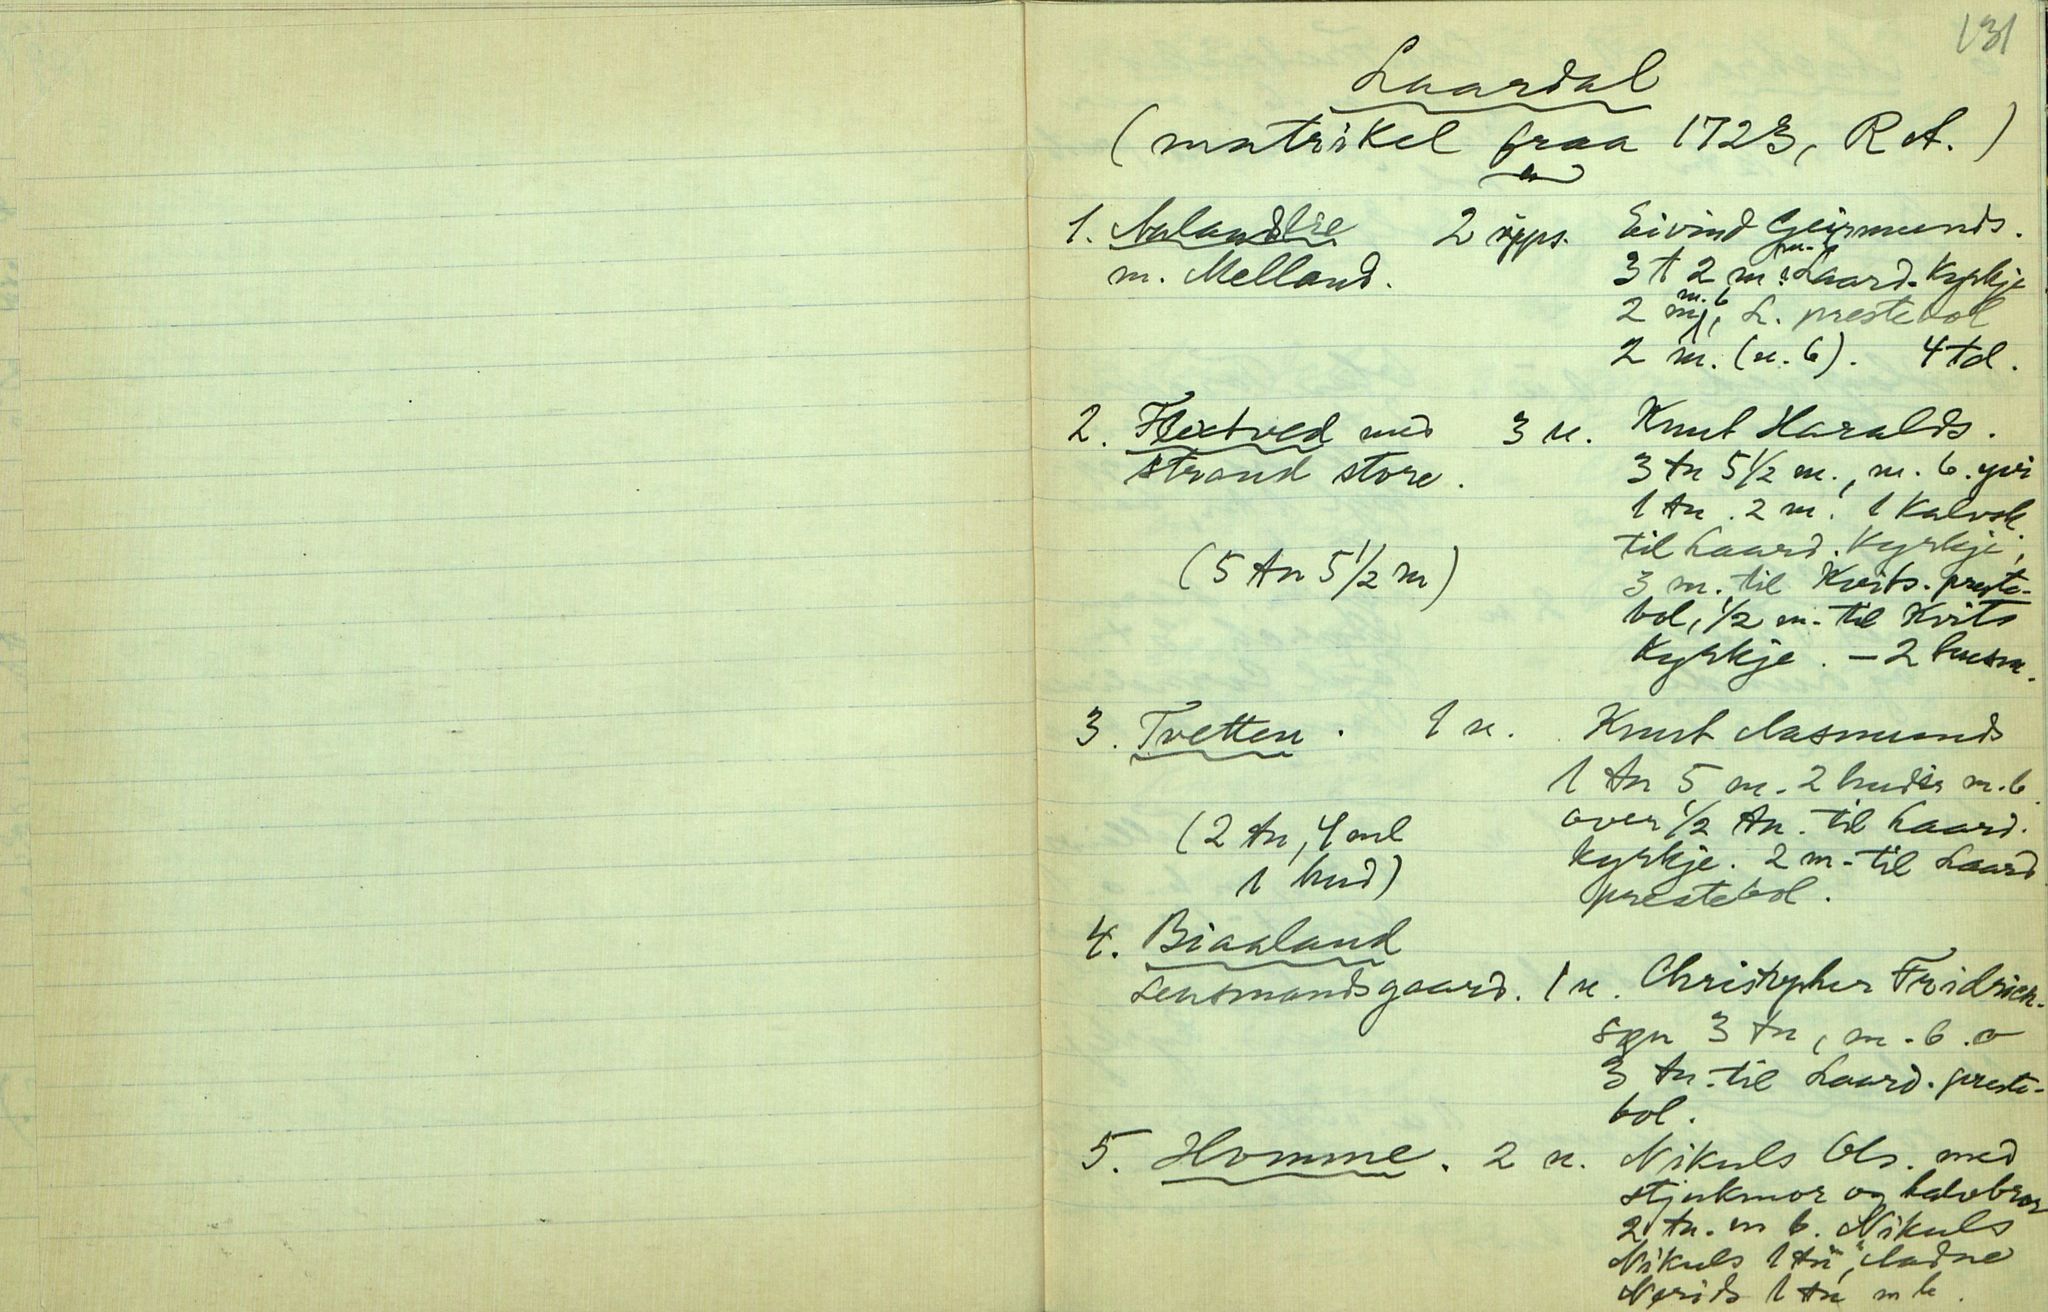 131
Laardal
(matrikel fraa 1723, R A.)
1. Aalandslie 2 opps. Eivind Geirmunds.
m. Melland. 3 t 2 m Laard. Kyrkje
2 m, m. b. L. prestebol
2 m. (m. b). 4 td.
2. Flextved med 3 u. Knut Haralds.
strand store. 3 tn 5 1/2 m., m. b. yvi
1 tn. 2 m. 1 Kalvsk.
til Laard. Kyrkje,
(5 tn 5 1/2 m) 3 m. til Kvits. preste-
bol, 1/2 m. til Kvits
Kyrkje. – 2 husm.
3. Tvetten. 1 u. Knut Aasmunds
1 tn 5 m. 2 huder m. b.
(2 tn, 4 ml over 1/2 tn. til Laard.
1 hud) kyrkje. 2 m. til Laard
prestebol.
4. Biaaland
Lensmandsgaard. 1 u. Christopher Fridrich-
søn 3 tn, m. b. o
3 tn. til Laard. preste-
bol.
5. Homme. 2 u. Nikuls Ols. med
stjukmor og halvbror
2 tn. m b. Nikuls
Nikuls 1 tn, Aadne
Nerids 1 tn m b.